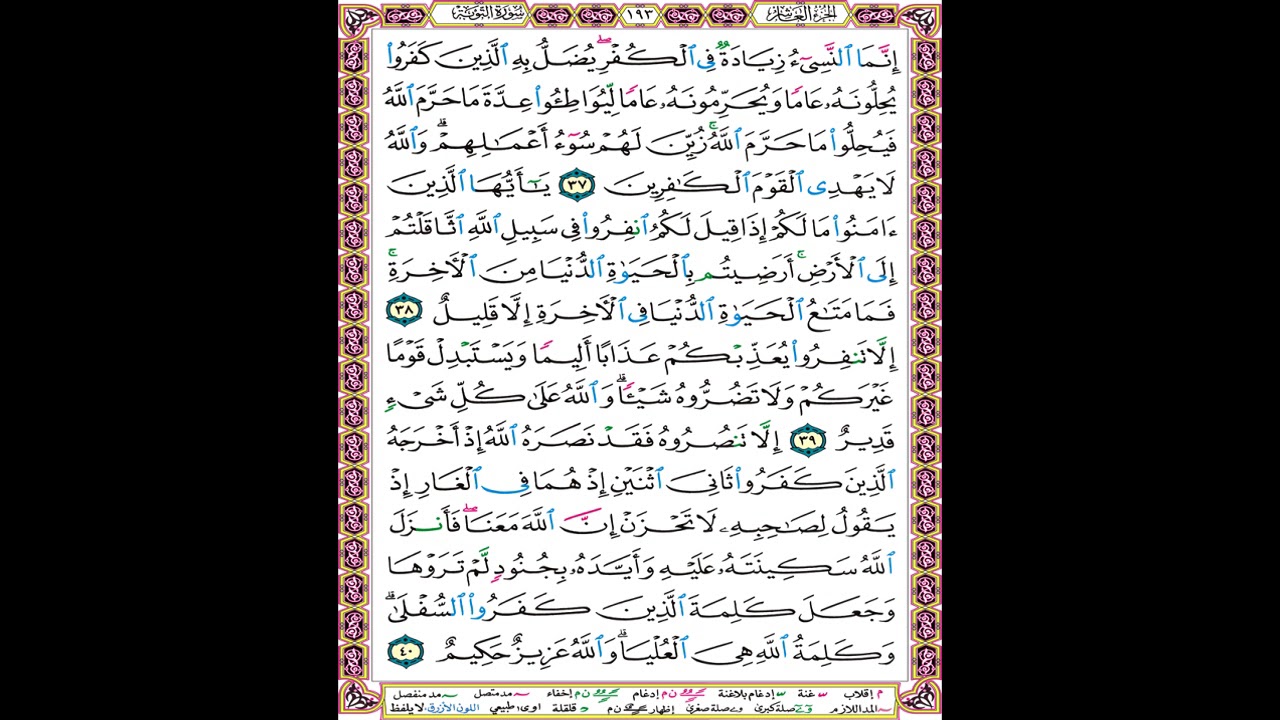 سورة التوبة ١٩٣ الجزء العاشر
إِنَّمَا ٱلنَّسِىٓءُ زِيَادَةٌ فِى ٱلْكُفْرِ ۖ يُضَلُّ بِهِ ٱلَّذِينَ كَفَرُوا۟
يُحِلُّونَهُۥ عَامًا وَيُحَرِّمُونَهُۥ عَامًا لِّيُوَاطِـُٔوا۟ عِدَّةَ مَا حَرَّمَ ٱللَّهُ
فَيُحِلُّوا۟ مَا حَرَّمَ ٱللَّهُ ۚ زُيِّنَ لَهُمْ سُوٓءُ أَعْمَـٰلِهِمْ ۗ وَٱللَّهُ
لَا يَهْدِى ٱلْقَوْمَ ٱلْكَـٰفِرِينَ ٣٧ يَـٰٓأَيُّهَا ٱلَّذِينَ
ءَامَنُوا۟ مَا لَكُمْ إِذَا قِيلَ لَكُمُ ٱنفِرُوا۟ فِى سَبِيلِ ٱللَّهِ ٱثَّاقَلْتُمْ
إِلَى ٱلْأَرْضِ ۚ أَرَضِيتُم بِٱلْحَيَوٰةِ ٱلدُّنْيَا مِنَ ٱلْـَٔاخِرَةِ ۚ
فَمَا مَتَـٰعُ ٱلْحَيَوٰةِ ٱلدُّنْيَا فِى ٱلْـَٔاخِرَةِ إِلَّا قَلِيلٌ ٣٨
إِلَّا تَنفِرُوا۟ يُعَذِّبْكُمْ عَذَابًا أَلِيمًا وَيَسْتَبْدِلْ قَوْمًا
غَيْرَكُمْ وَلَا تَضُرُّوهُ شَيْـًٔا ۗ وَٱللَّهُ عَلَىٰ كُلِّ شَىْءٍ
قَدِيرٌ ٣٩ إِلَّا تَنصُرُوهُ فَقَدْ نَصَرَهُ ٱللَّهُ إِذْ أَخْرَجَهُ
ٱلَّذِينَ كَفَرُوا۟ ثَانِىَ ٱثْنَيْنِ إِذْ هُمَا فِى ٱلْغَارِ إِذْ
يَقُولُ لِصَـٰحِبِهِۦ لَا تَحْزَنْ إِنَّ ٱللَّهَ مَعَنَا ۖ فَأَنزَلَ
ٱللَّهُ سَكِينَتَهُۥ عَلَيْهِ وَأَيَّدَهُۥ بِجُنُودٍ لَّمْ تَرَوْهَا
وَجَعَلَ كَلِمَةَ ٱلَّذِينَ كَفَرُوا۟ ٱلسُّفْلَىٰ ۗ
وَكَلِمَةُ ٱللَّهِ هِىَ ٱلْعُلْيَا ۗ وَٱللَّهُ عَزِيزٌ حَكِيمٌ ٤٠
م إقلاب غنة إدغام بلاغنة ن م إدغام ن م إخفاء مد متصل مد منفصل
المد اللازم صلة كبرى صلة صغرى إظهار ن م قلقلة اوى: طبيعي اللون الأزرق: لا يلفظ